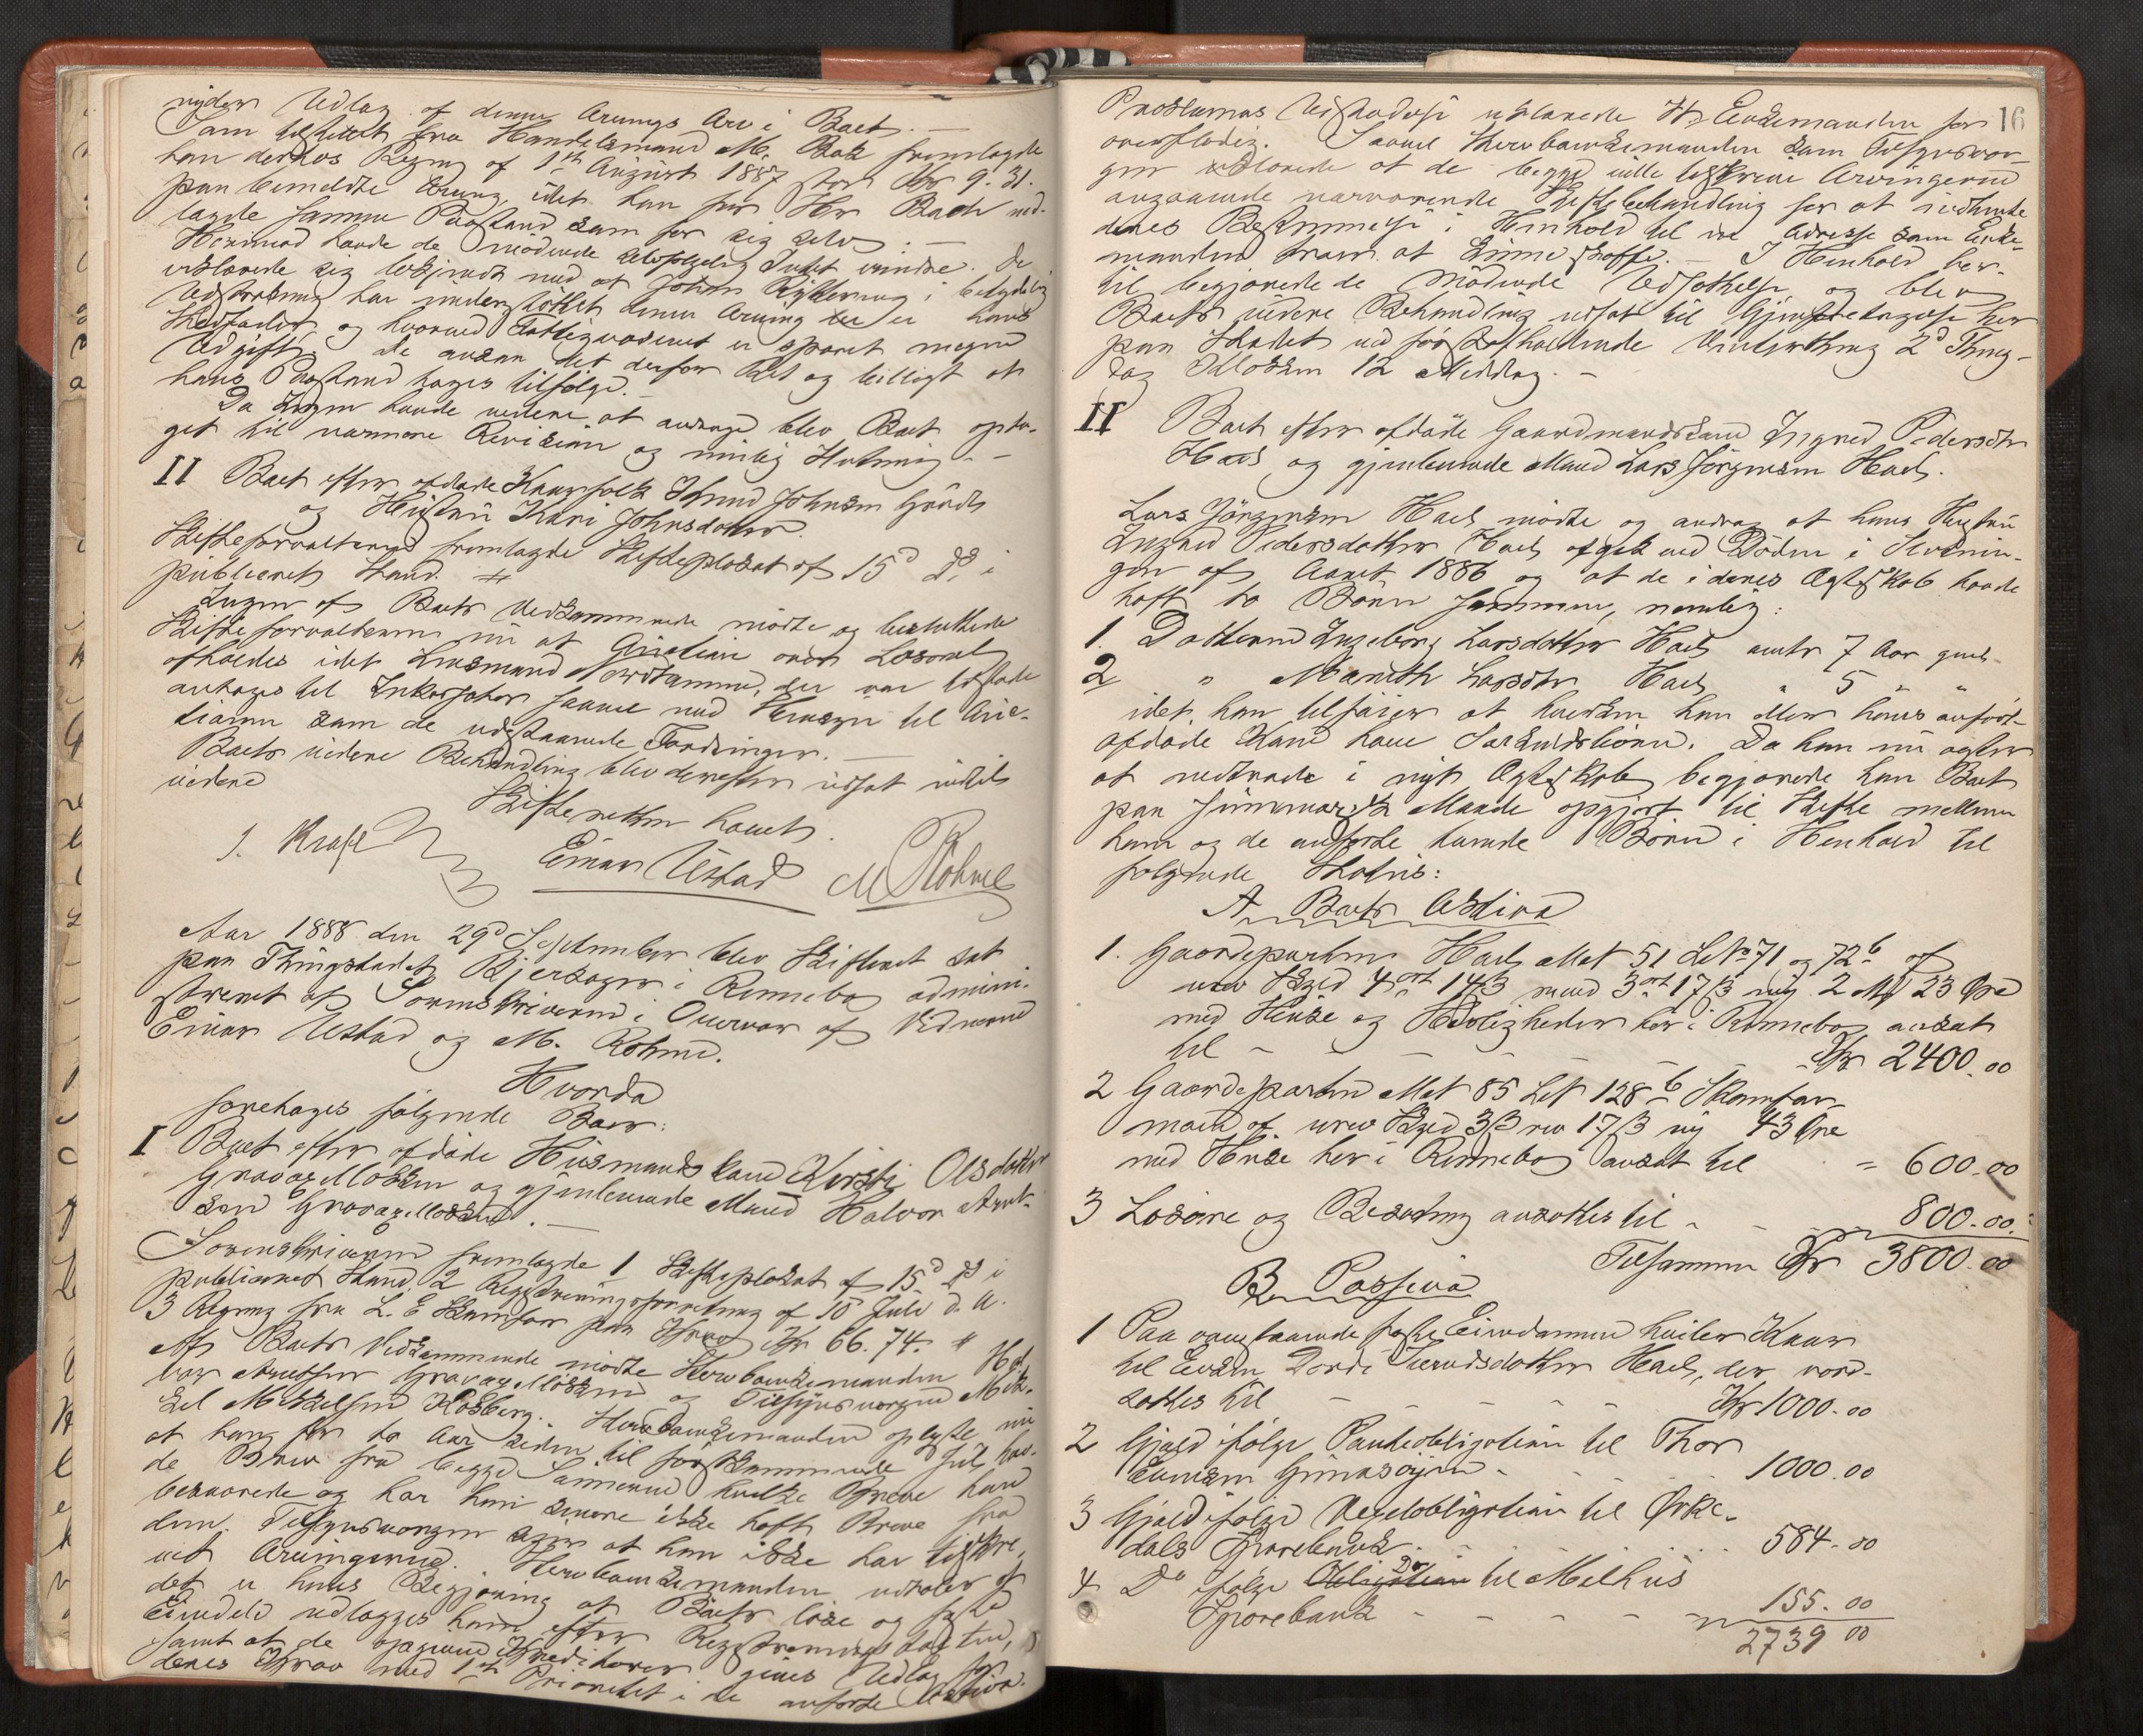 nyder Udlag af denne Arvings Arv i Boet. —
Som tilstillet fra Handelsmand M. Bak fremlagde
han derhos Regning af 1ste August 1887 stor Kr 9.31.
paa bemeldte Arving, idet han for Hr Bach ned-
lagde samme Paastand som for sig selv. —
Herimod havde de mødende selvfølgelig Intet erindre. De
erklærede sig bekjendt med at Johan Rytterhaug i betydelig
Udstrækning har understøttet denne Arving der er hans
Stedfader og hvorved Fattigvæsenet er sparet megen
Udgift. De ansaa det derfor Ret og billigt at
hans Paastand tages tilfølge. —
Da Ingen havde videre at andrage blev Boet opta-
get til nærmere Revision og mulig Slutning. —
II Boet efter afdøde Kaarfolk Knud Johnsen Gråds
og Hustru Kari Johnsdatter.
Skifteforvalteren fremlagde Skifteplakat af 15d ds. i
publiceret Stand. #
Ingen af Boets Vedkommende mødte og besluttede
Skifteforvalteren nu at Auktion over Løsøret
afholdes idet Lensmand der var tilstede
antages til Inkassator saavel med Hensyn til Auk-
tionen som de udstaaende Fordringer. —
Boets videre Behandling blev derefter udsat indtil
videre
Skifteretten hævet.
J. Kraft Einar Ustad M Rohme
Aar 1888 den 29d September blev Skifteret sat
paa Thingstedet Bjerkager i Rennebo admini-
streret af Sorenskriveren i Overvær af Vidnerne
Einar Ustad og M. Rohme.
Hvorda
foretages følgende Boer:
I Boet efter afdøde Husmandskone Kirsti Olsdatter
Gravaghaugen og gjenlevende Mand Halvor Arnt-
sen .—
Sorenskriveren fremlagde 1 Skifteplakat af 15d ds i
publiceret Stand, 2 Registreringsforretning af 10 Juli d. A.
3 Regning fra L. E. Skamfer paa Krav Kr 66.74. "
Af Boets Vedkommende mødte Enkemanden Hal-
vor Arntsen og Tilsynsværgen Mik-
kel Mikkelsen Kosberg. Enkemanden oplyste nu
at han for to Aar siden til førstkommende Jul hav-
de Brev fra begge Sønnerne hvilke Breve han
besvarede og har han senere ikke haft Breve fra
dem. Tilsynsværgen siger at han ikke har tilskre-
vet Arvingerne. Enkemanden udtaler at
det er hans Begjæring at Boets løse og faste
Eiendele udlægges ham efter Registreringstaxten,
samt at de opgivne Kreditorer gives Udlæg for
deres Krav med 1ste Prioritet i de anførte Aktiva.
16
Proclamas Udstedelse erklærede Hr Enkemanden for
overflødig. Saavel Enkemanden som Tilsynsvær-
gen erklærede at de begge ville tilskrive Arvingerne
angaaende nærværende Skiftebehandling for at indhente
deres Bestemmelse i Henhold til en Adresse som Enke-
manden troer at kunne skaffe. — I Henhold her-
til begjærede de mødende Udsættelse og blev
Boets videre Behandling udsat til Gjenforetagelse her
paa Stedet ved førstafholdende Vinterthing 2d Thing-
dag Klokken 12 Middag. —
II Boet efter afdøde Gaardmandskone Ingred Pedersdtr
Hæls og gjenlevende Mand Lars Jørgensen Hæls.
Lars Jørgensen Hæls mødte og androg at hans Hustru
Ingred Pedersdatter Hæls afgik ved Døden i Slutnin-
gen af Aaret 1886 og at de i deres Ægteskab havde
haft to Børn sammen, nemlig:
1. Datteren Ingeborg Larsdatter Hæls omtr 7 Aar gml.
2 " Marith Larsdtr Hæls " 5 " "
idet han tilføier at hverken han eller hans anført-
afdøde Kone have Særkuldsbørn. Da han nu agter
at indtræde i nyt Ægteskab begjærede han Boet
paa summarisk Maade opgjort til Skifte mellem
ham og de anførte tvende Børn i Henhold til
følgende Status:
A Boets Aktiva
1. Gaardeparten Hæls Mat 51 LNo 71 og 72b af
urev Skyld 4 ort 14 β reved 3 ort 17 β ny 2 Mk 23 Øre
med Huse og Herligheder her i Rennebo ansat
til — — — — — — Kr 2400.00
2 Gaardeparten Mat 85 LN 128b Skamfer-
moen af urev Skyld 3 β rev 17 β ny 43 Øre
med Huse her i Rennebo ansat til = 600.00
3 Løsøre og Besætning ansættes til — — — 800.00
Tilsammen Kr 3800.00
B. Passiva
1 Paa ovenstaaende faste Eiendomme hviler Kaar
til Enken Dordi Sivertsdatter Hæls, der værd-
sættes til — — — — — Kr 1000.00
2 Gjæld ifølge Panteobligation til Thor
Evensen Gunnesøyen — — — 1000.00
3 Gjæld ifølge Vexelobligation til Orke-
dals Sparebank . . . . 584.00
4 Do ifølge Obligation Do til Melhus
Sparebank — — — — 155.00
2739 00